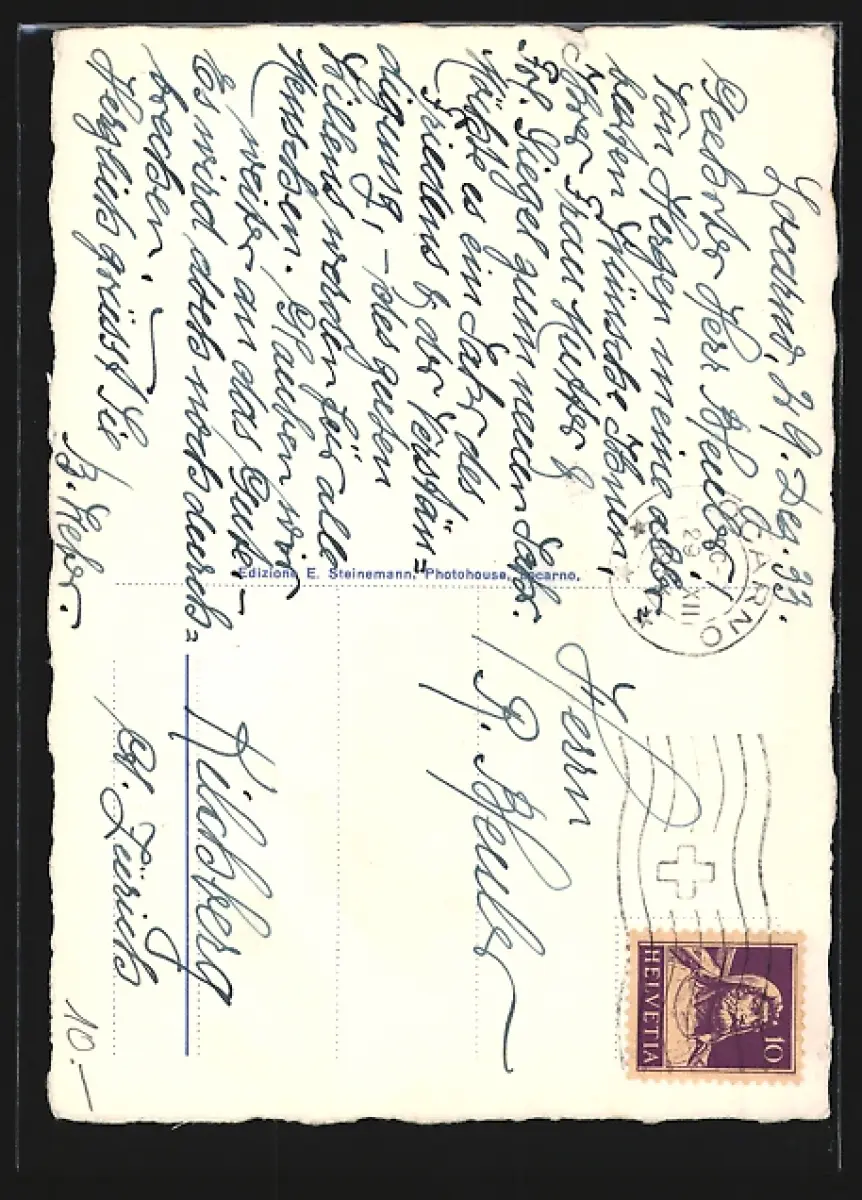 Locarno, 29. Dez. 33.
Geehrter Herr Steuber!
Von Herzen meine aller-
besten Wünsche Ihnen,
Ihrer Frau Mutter &
Frl. Slieger zum neuen Jahr.
Möchte es ein Jahr des
Friedens & der Verstän=
digung, - des guten
Willens werden für alle
Menschen. Glauben wir
weiter an das Gute, -
Es wird doch noch durch=
brechen.
Herzlich grüsst Sie
Edizione E. Steinemann, Photohouse, Locarno.
LOCARNO
29
XII
Herrn
Kilchberg
Kt. Zürich
HELVETIA
10
10.-